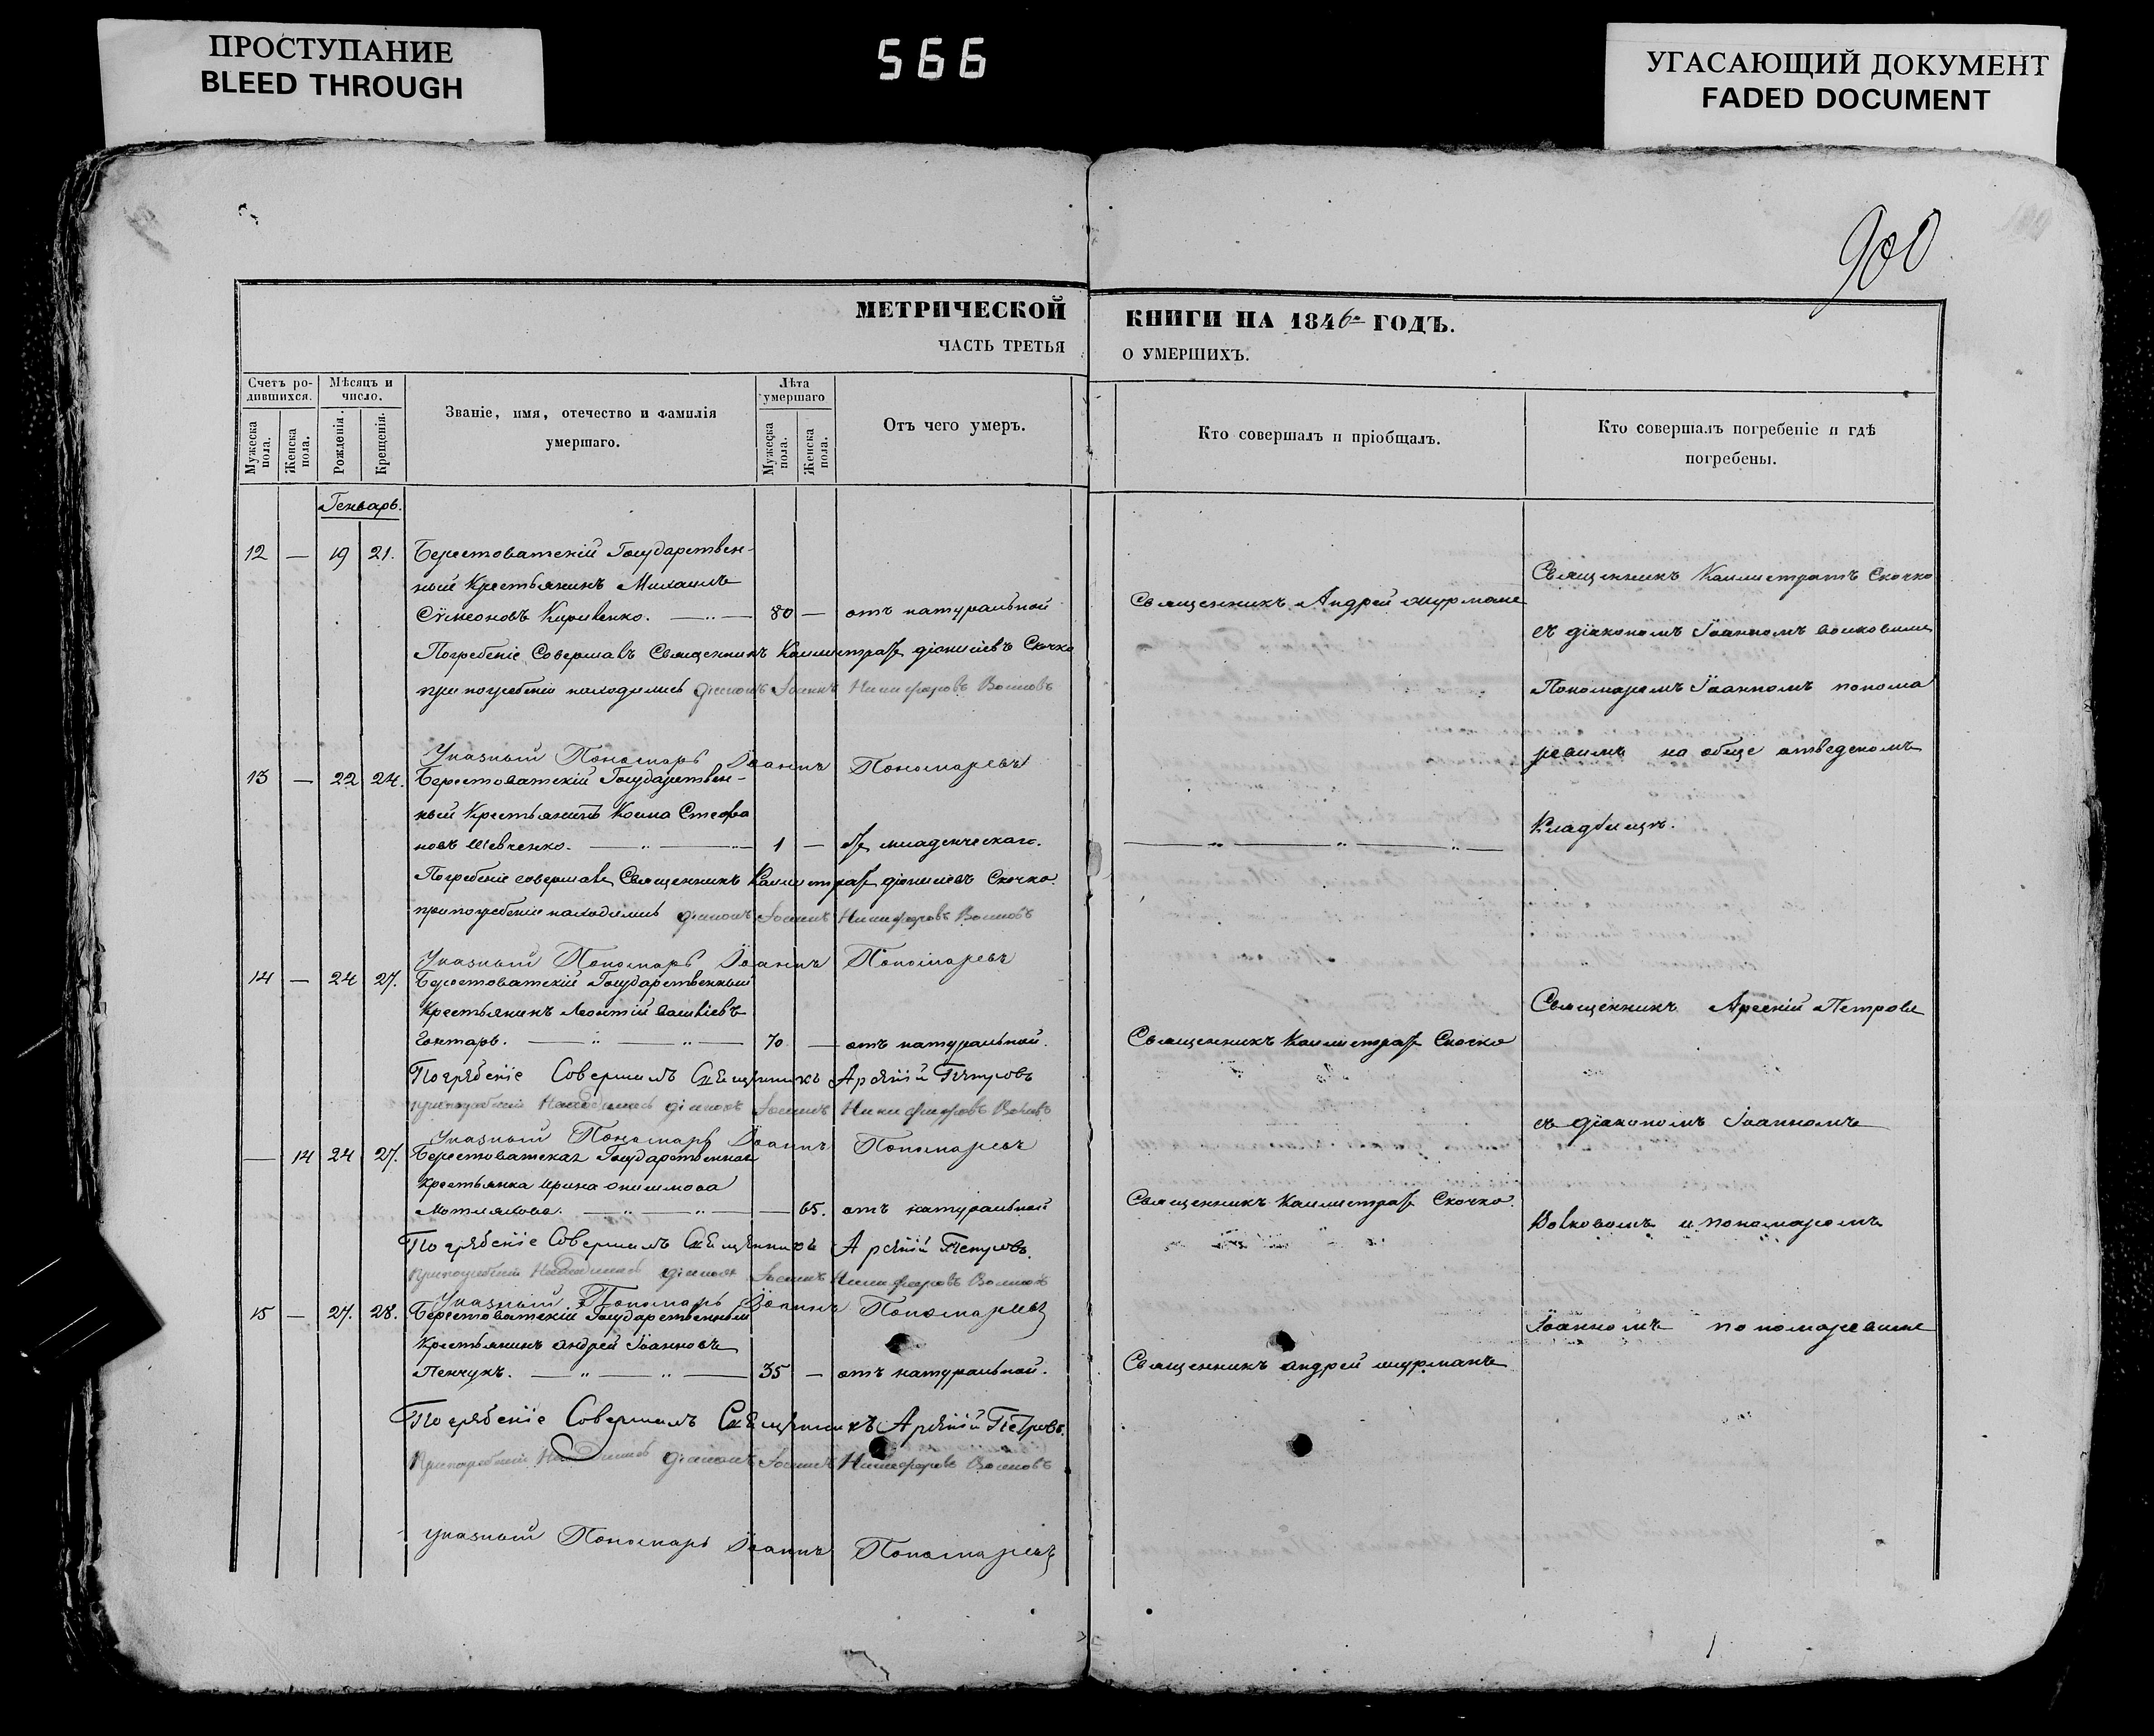 ПРОСТУПАНИЕ
BLEED THROUGH
566
УГАСАЮЩИЙ ДОКУМЕНТ
FADED DOCUMENT
900
МЕТРИЧЕСКОЙ
ЧАСТЬ ТРЕТЬЯ
КНИГИ НА 1846 ГОДЪ.
О УМЕРШИХЪ.
Счетъ ро-
дившихся.
Мѣсяцъ и
число.
Мужеска пола.
Женска пола.
Рожденія.
Крещенія.
Званіе, имя, отечество и фамилія
умершаго.
Лѣта
умершаго
Мужеска пола.
Женска пола.
Отъ чего умеръ.
Кто совершалъ и пріобщалъ.
Кто совершалъ погребеніе и гдѣ
погребены.
Генварь.
12 — 19 21. Берестоватскій Государствен-
ный Крестьянинъ Михаилъ
Сѵмеоновъ Кириленко. — 80 — отъ натуральной
Погребеніе Совершалъ Священникъ Каллистратъ діонисіевъ Скочко
при погребеніи находились діаконъ Іоаннъ Никифоровъ Волковъ
Указный Пономарь Іоаннъ Пономаревъ
13 — 22 24. Берестоватскій Государствен-
ный Крестьянинъ Косма Стефа
новъ Шевченко. — 1 — отъ младенческаго.
Погребеніе совершалъ Священникъ Каллистратъ діонисіевъ Скочко.
при погребеніи находились діаконъ Іоаннъ Никифоровъ Волковъ
Указный Пономарь Іоаннъ Пономаревъ
14 — 24 27. Берестоватскій Государственный
Крестьянинъ Леонтій василіевъ
Гонтарь. — 70 — отъ натуральной.
Погребеніе Совершилъ Священникъ Арсеній Петровъ
при погребеніи Находились діаконъ Іоаннъ Никифоровъ Волковъ
Указный Пономарь Іоаннъ Пономаревъ
— 14 24 27. Берестоватская Государственная
крестьянка ирина онисимова
— 65. отъ натуральной
Погребеніе Совершилъ Священникъ Арсеній Петровъ.
При погребеніи Находились діаконъ Іоаннъ Никифоровъ Волковъ
Указный Пономарь Іоаннъ Пономаревъ
15 — 27. 28. Берестоватскій Государственный
крестьянинъ андрей Іоанновъ
Пенчукъ. — 35 — отъ натуральной.
Погребеніе Совершилъ Священникъ Арсеній Петровъ.
При погребеніи Находились діаконъ Іоаннъ Никифоровъ Волковъ
Указный Пономарь Іоаннъ Пономаревъ
Священникъ Андрей шурманъ
Священникъ Каллистратъ Скочко
Священникъ Каллистратъ Скочко.
Священникъ андрей шурманъ
Священникъ Каллистратъ Скочко
съ діакономъ Іоанномъ волковымъ
Пономаремъ Іоанномъ понома
ревымъ на обще отведеномъ
Кладбищѣ.
Священникъ Арсеній Петровъ
съ діакономъ Іоанномъ
Волковомъ и пономаремъ
Іоанномъ пономаревымъ